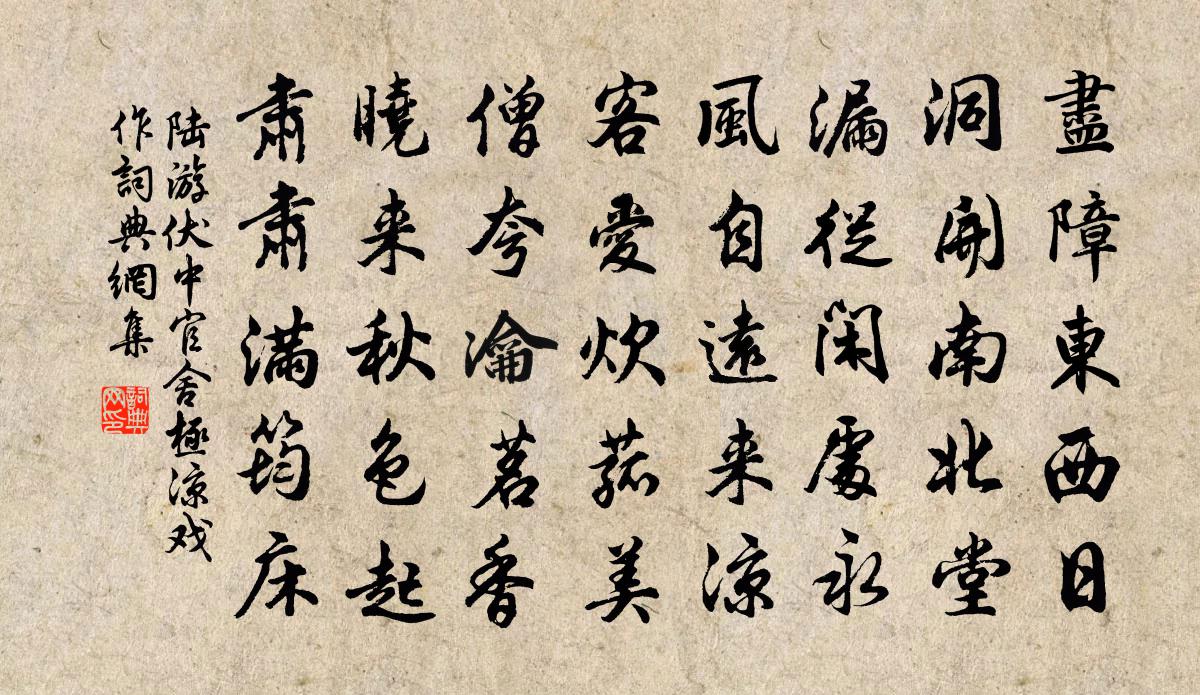 盡障東西日
洞開南北堂
漏從閑處永
風自遠来涼
客愛炊菰美
僧夸瀹茗香
曉来秋色起
肅肅滿筠床
陆游伏中官舍極涼戏
作詞典網集
詞典
网印